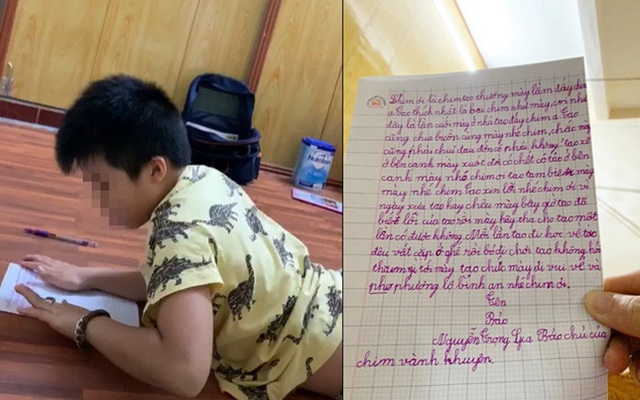 Chim ơi là chim tao thương mày lắm đấy chim
ạ. Tao thích nhất là bọn chim như mày, coi như
đây là lần cuối mày ở nhà tao đấy chim ạ. Tao
cũng chia buồn cùng mày nhé chim, chắc mày
cũng phải chịu đau đớn có phải không? tao sẽ
ở bên cạnh mày suốt đời có chết có tao ở bên
cạnh mày nhé chim ơi tao tạm biệt mày
mày nhé chim. Tao xin lỗi nhé chim ơi vì
ngày xưa tao hay chêu mày bây giờ tao đã
biết lỗi của tao rồi mày hãy tha cho tao một
lần có được không. Mỗi lần tao đi học về tao
đều vất cặp ở ghế rồi bỏ đi chơi tao không hỏi
thăm gì tới mày tao chúc mày đi vui vẻ và
phơ phường lộ bình an nhé chim ơi.
Tên
Bảo
Nguyễn Trọng Gia Bảo chủ của
chim vành khuyên.